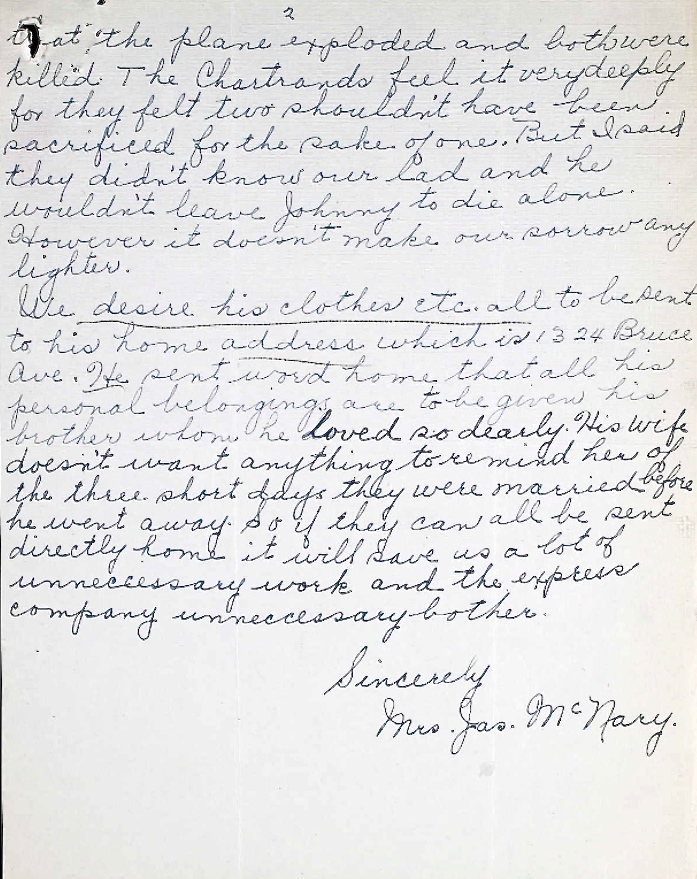 2
that the plane exploded and both were
killed. The Chartrands feel it very deeply
for they felt two shouldn't have been
sacrificed for the sake of one. But I said
they didn't know our lad and he
wouldn't leave Johnny to die alone.
However it doesn't make our sorrow any
lighter.
We desire his clothes etc. all to be sent
to his home address which is 1324 Bruce
Ave. He sent word home that all his
personal belongings are to be given his
brother whom he loved so dearly. His wife
doesn't want anything to remind her of
the three short days they were married before
he went away. So if they can all be sent
directly home it will save us a lot of
unneccessary work and the express
company unneccessary bother.
Sincerely
Mrs. Jas. McNary.